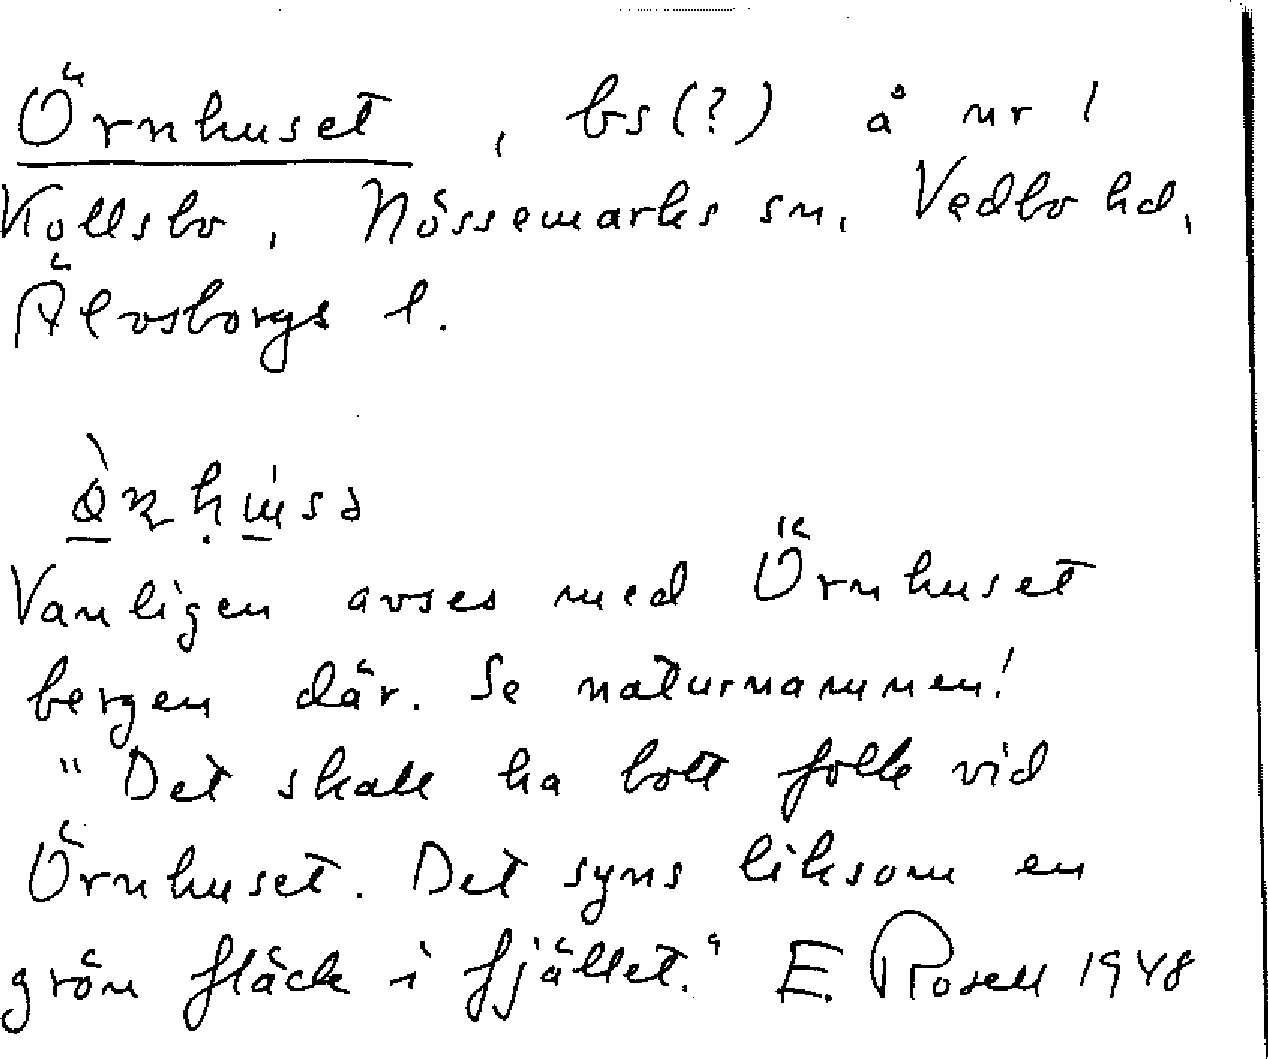 Örnhuset, bs(?) å nr 1
Kollsbo, Nössemarks sn, Vedbo hd,
Älvsborgs l.
Vanligen avses med Örnhuset
bergen där. Se naturnamnen!
"Det skall ha bott folk vid
Örnhuset. Det syns liksom en
grön fläck i fjället." E. Rosell 1948